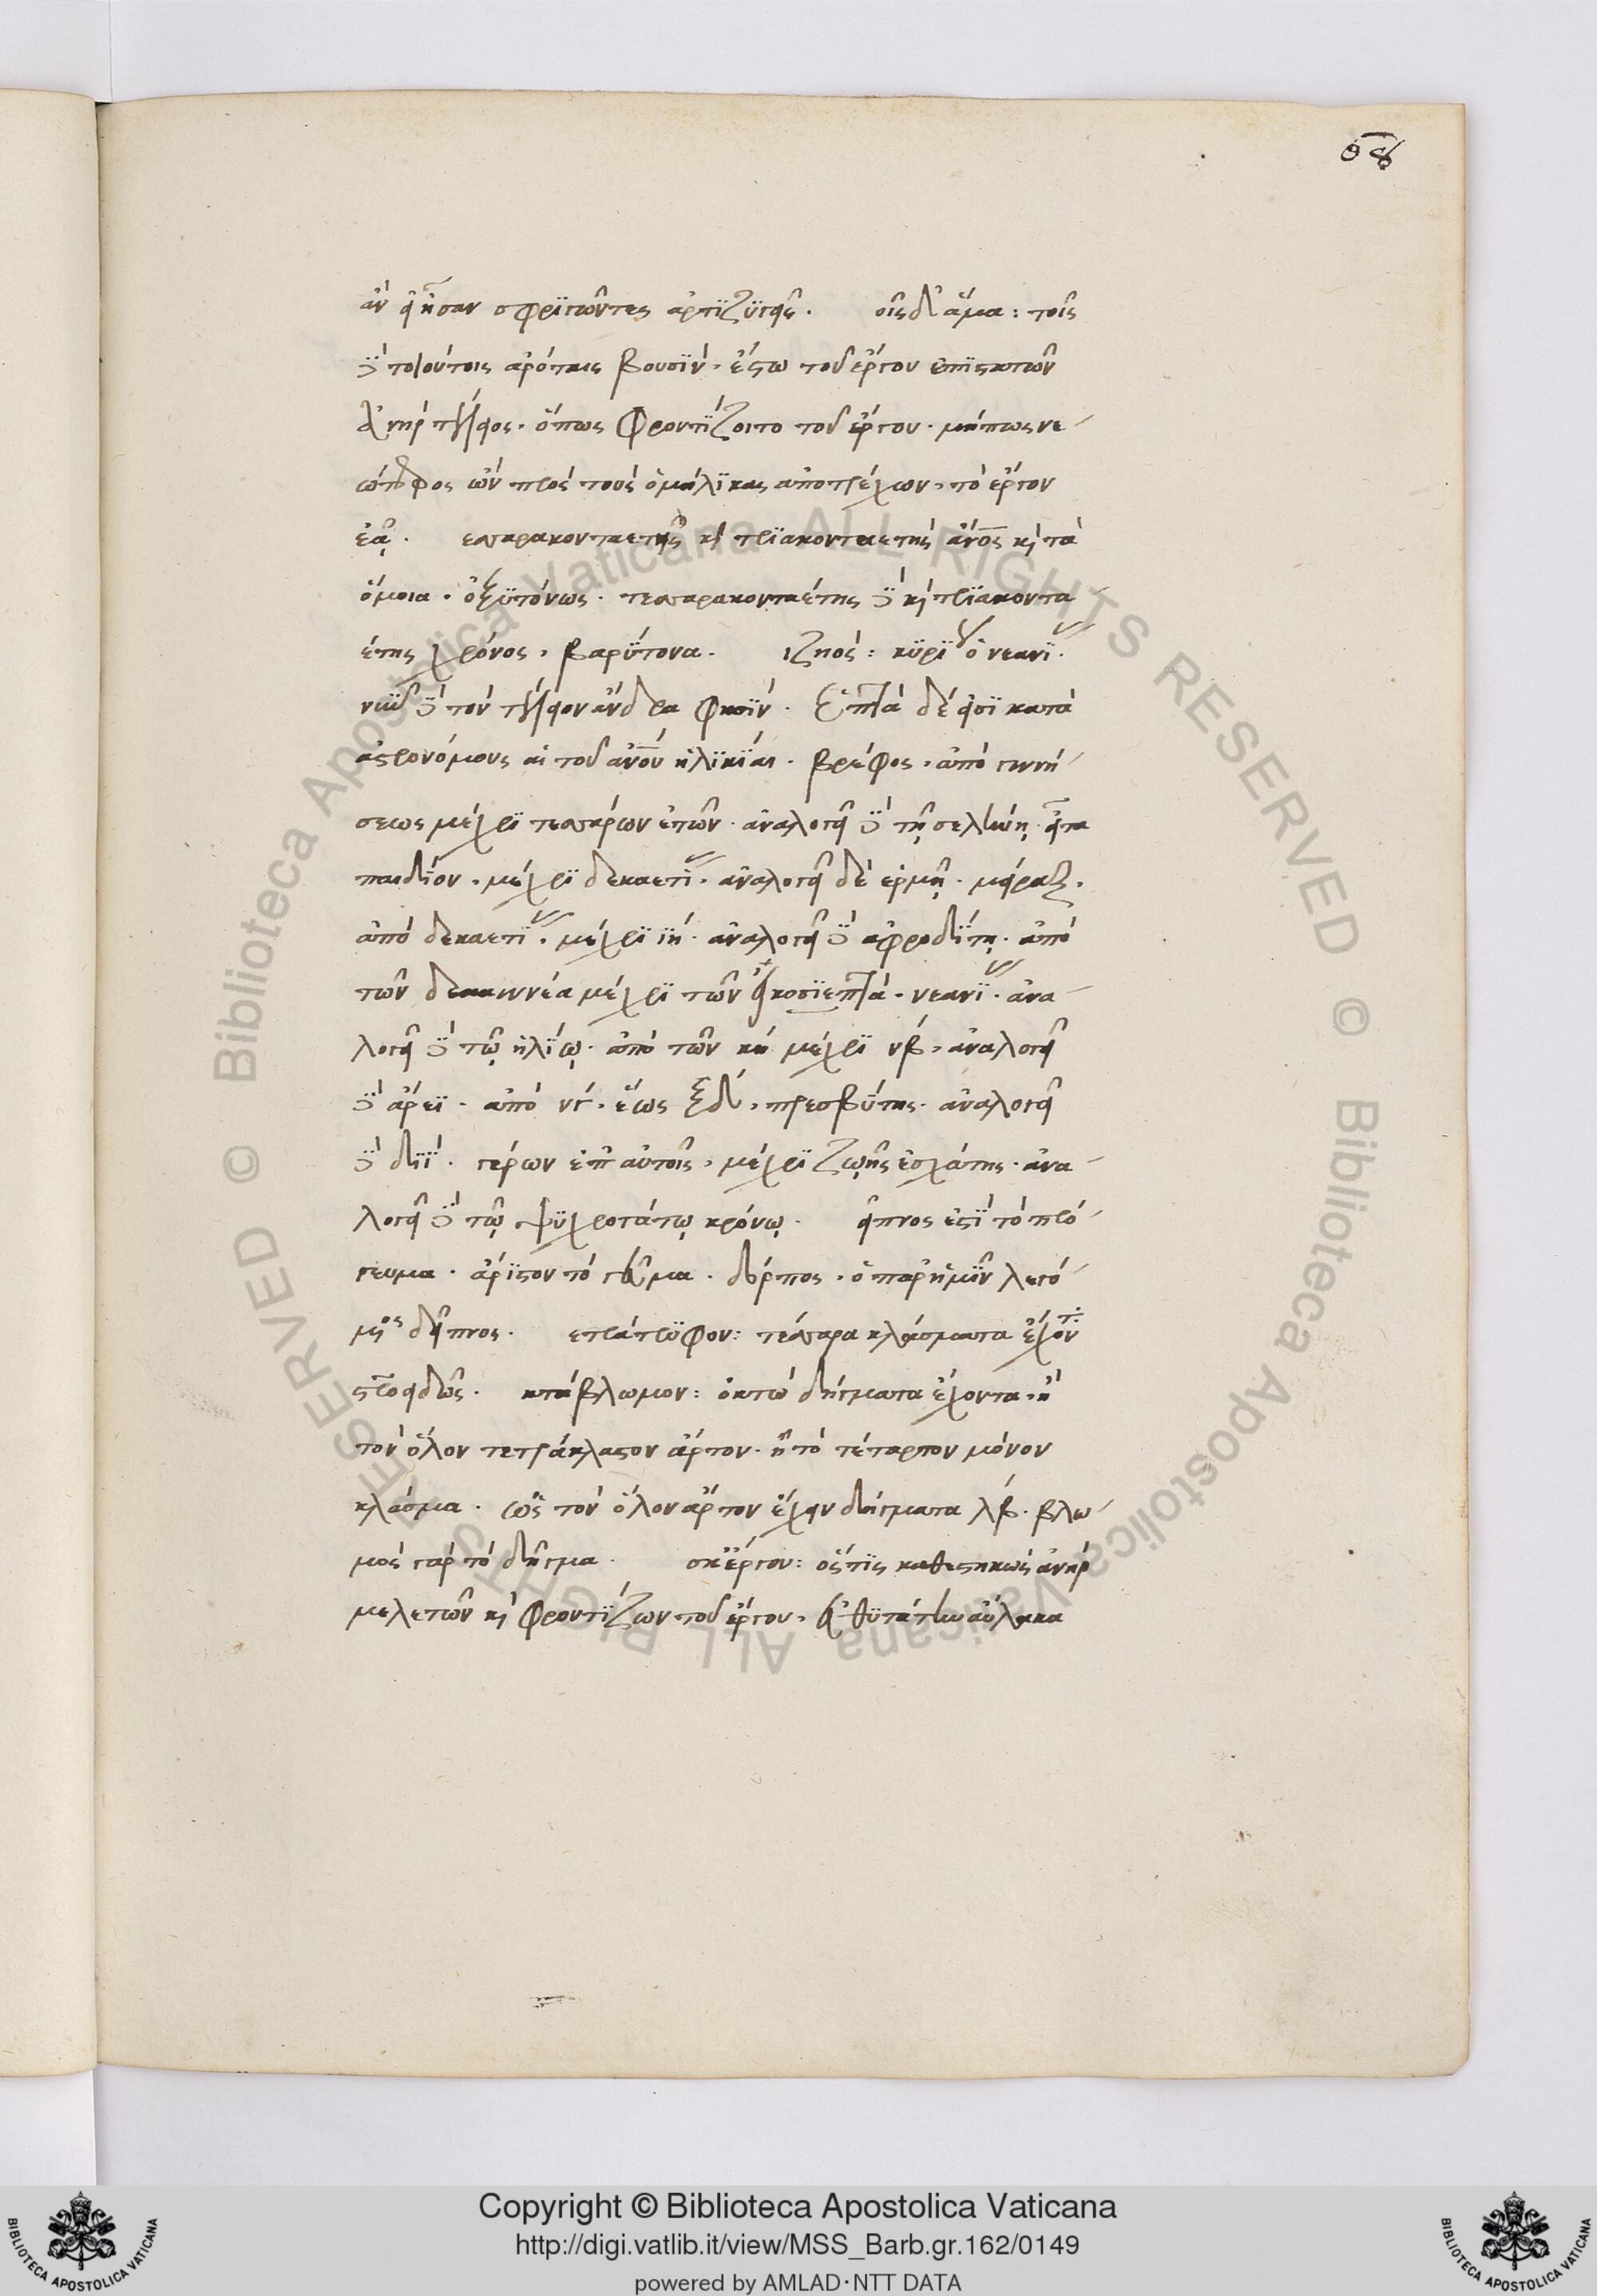 58
ἂν εἴησαν σφριγῶντες ἀρτιζυγεῖς. οἷς δ' ἅμα: τοῖς
δὲ τοιούτοις ἀρόταις βουσὶν. ἔστω τοῦ ἔργου ἐπιστατῶν
ἀνὴρ τέλειος. ὅπως φροντίζοιτο τοῦ ἔργου. μήπως νε-
ώτερος ὢν πρὸς τοὺς ὁμήλικας ἀποτρέχων, τὸ ἔργον
ἐᾷ. εσσαρακονταετὴς καὶ τριακονταετὴς ἄνος καὶ τὰ
ὅμοια. ὀξυτόνως. τεσσαρακονταέτης δὲ καὶ τριακοντα-
έτης χρόνος, βαρύτονα. ιζηός: κυρί ὁ νεανί.
νῦν δὲ τὸν τέλειον ἄνδρα φησὶν. Ἑπτὰ δέ εἰσι κατὰ
ἀστρονόμους αἱ τοῦ ἀνου ἡλικίαι. βρέφος, ἀπὸ γεννή-
σεως μέχρι τεσσάρων ἐτῶν. ἀναλογεῖ δὲ τῇ σελήνῃ. εἶτα
παιδίον, μέχρι δεκαετί. ἀναλογεῖ δὲ ἑρμῇ. μείραξ,
ἀπὸ δεκαετί. μέχρι ιη. ἀναλογεῖ δὲ ἀφροδίτῃ. ἀπὸ
τῶν δεκαεννέα μέχρι τῶν εἰκοσιεπτὰ. νεανί. ἀνα-
λογεῖ δὲ τῷ ἡλίῳ. ἀπὸ τῶν κη μέχρι νβ, ἀναλογεῖ
δὲ ἄρει. ἀπὸ νγ. ἕως ξδ, πρεσβύτης. ἀναλογεῖ
δὲ διί. γέρων ἐπ' αὐτοῖς, μέχρι ζωῆς ἐσχάτης. ἀνα-
λογεῖ δὲ τῷ ψυχροτάτῳ κρόνῳ. εῖπνος ἐστὶ τὸ πρό-
γευμα. ἄριστον τὸ γεῦμα. δόρπος, ὁ παρ' ἡμῖν λεγό-
μενος δεῖπνος. ετράτρυφον: τέσσαρα κλάσματα ἔχοντ
στροειδῶς. κτάβλωμον: ὀκτὼ δήγματα ἔχοντα. ἢ
τὸν ὅλον τετράκλαστον ἄρτον. ἢ τὸ τέταρτον μόνον
κλάσμα. ὡς τὸν ὅλον ἄρτον ἔχειν δήγματα λβ. βλω-
μὸς γὰρ τὸ δῆγμα. σκ' ἔργου: ὅστις καθεστηκὼς ἀνὴρ
μελετῶν καὶ φροντίζων τοῦ ἔργου, εὐθυτάτην αὔλακα
Copyright © Biblioteca Apostolica Vaticana
http://digi.vatlib.it/view/MSS_Barb.gr.162/0149
powered by AMLAD·NTT DATA